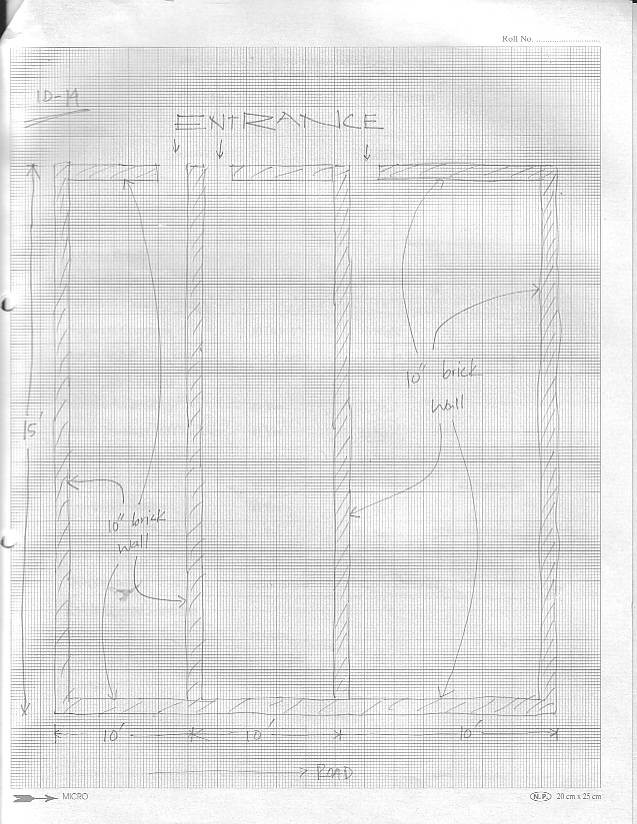 Roll No. ..............................
ID-14
ENTRANCE
15'
10" brick
wall
10" brick
wall
10' 10' 10'
ROAD
MICRO
N.P. 20 cm x 25 cm